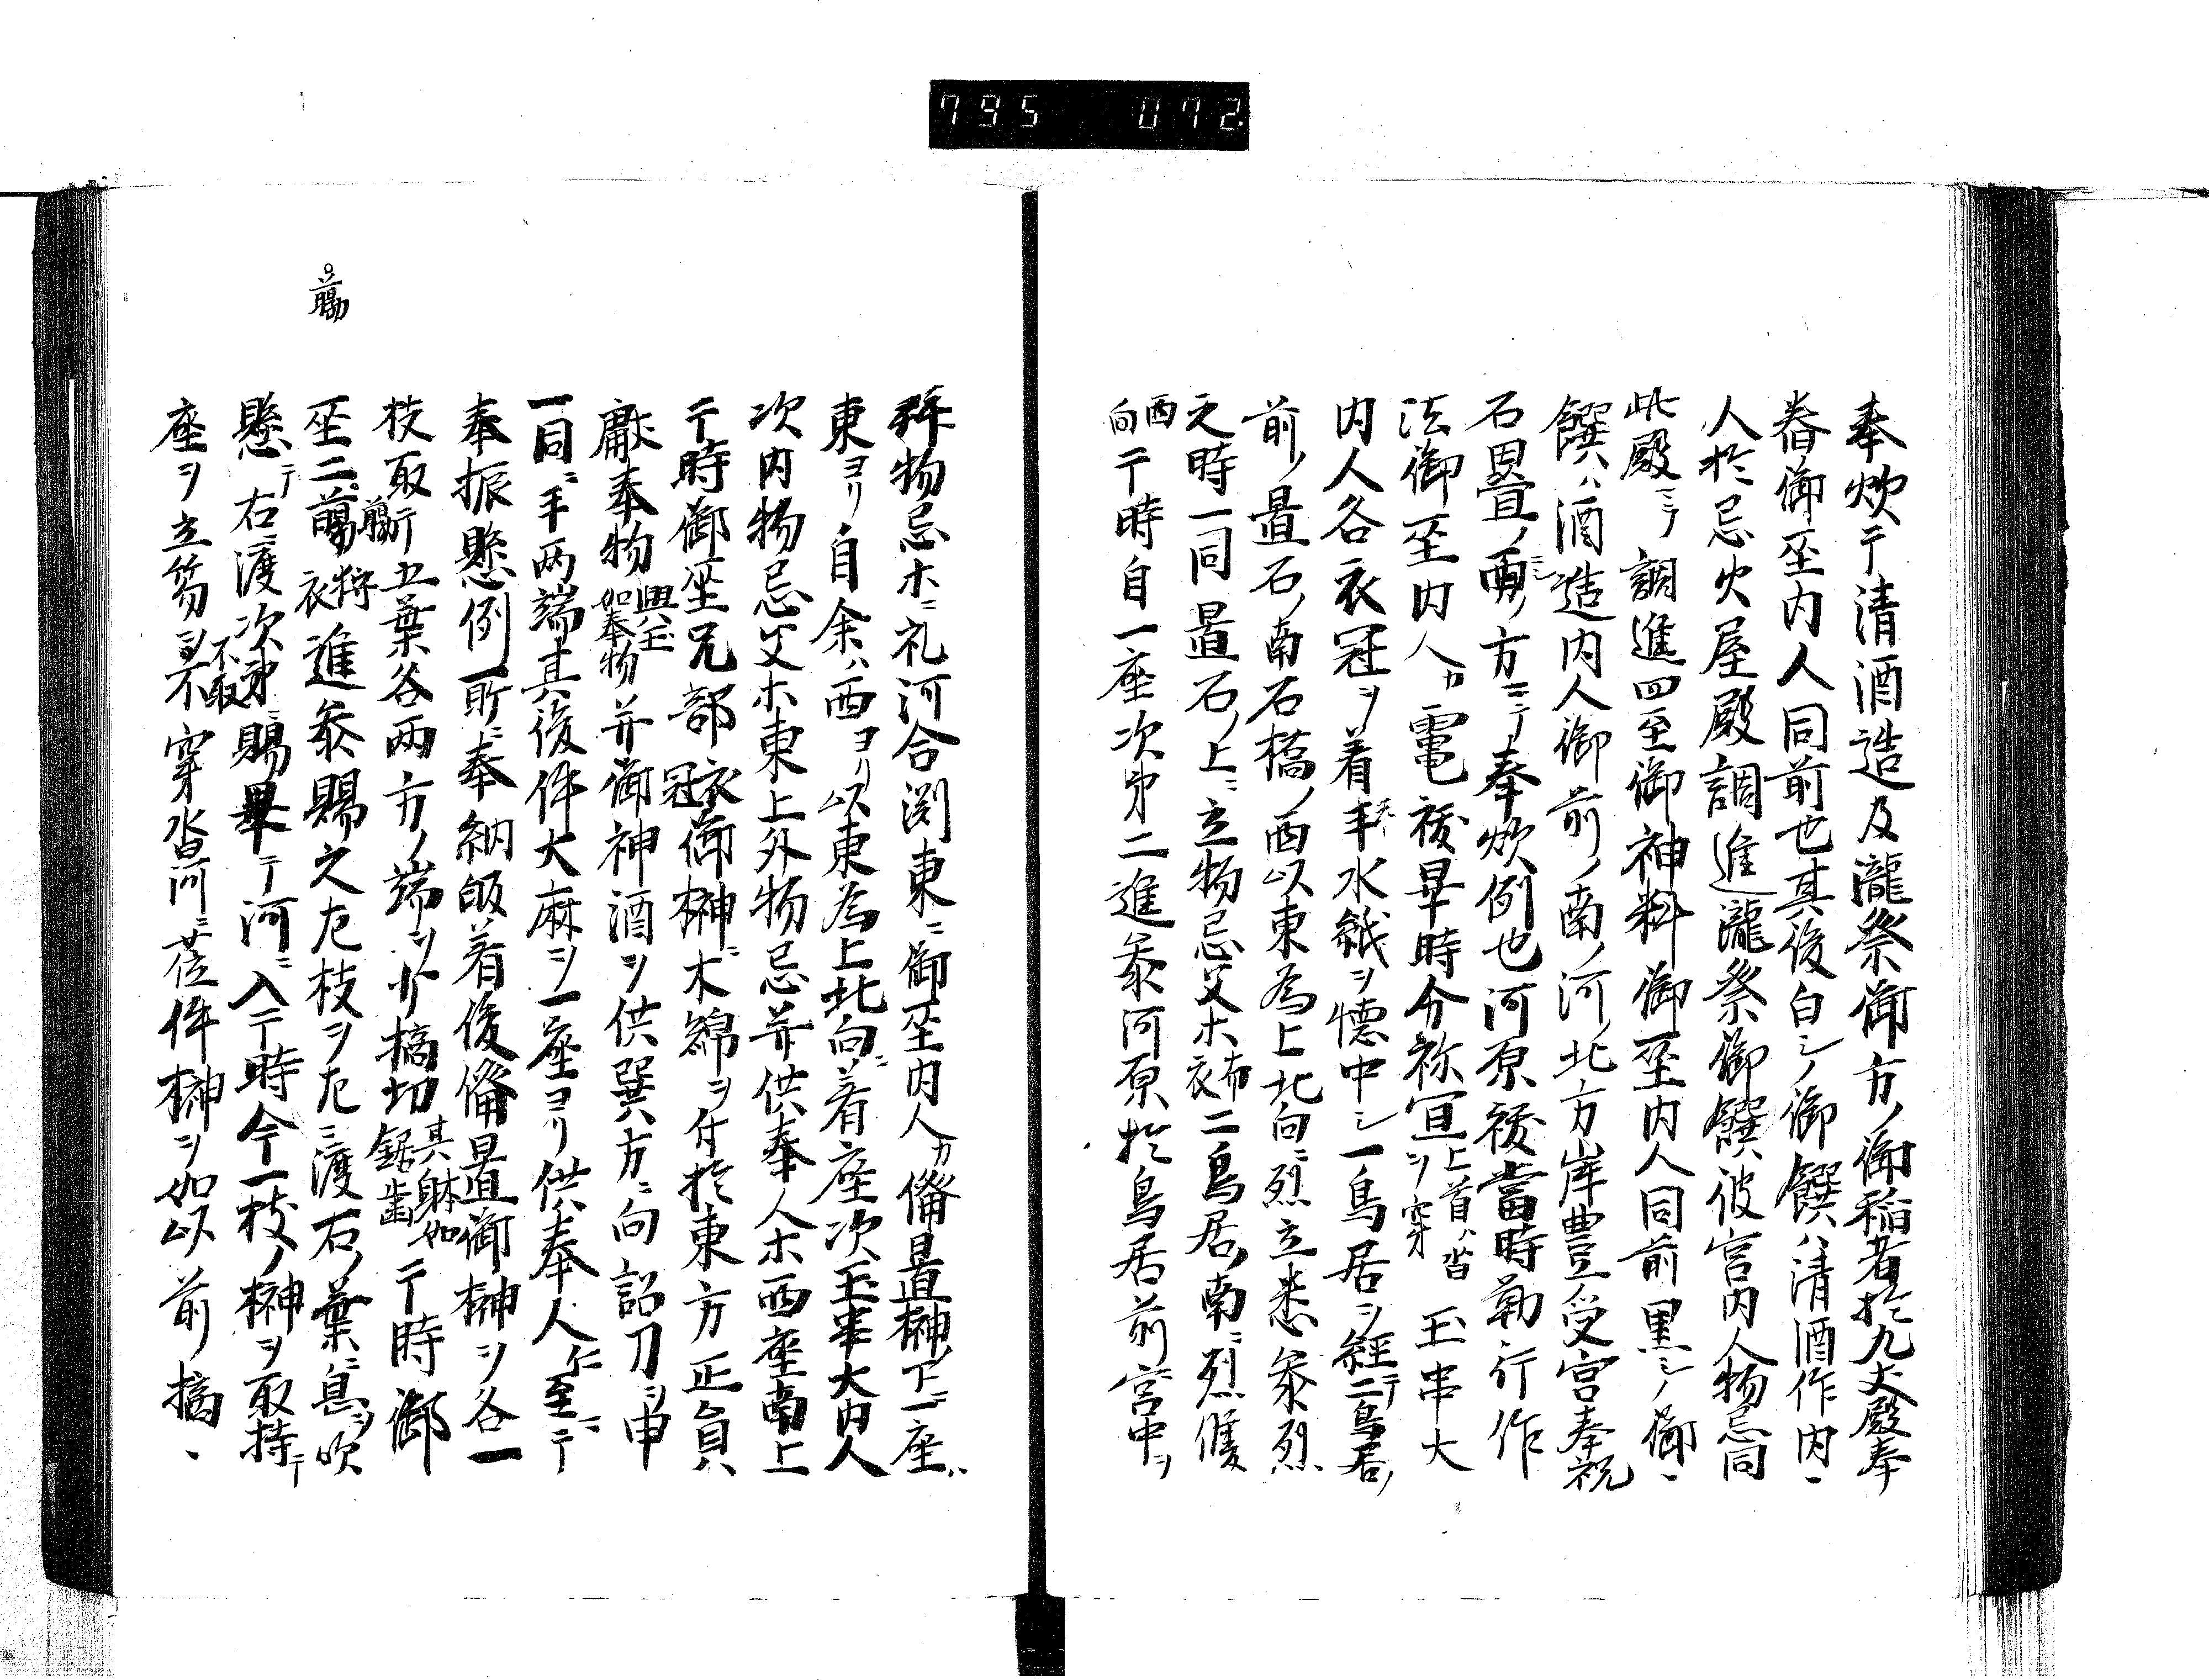 795 072
奉炊テ清酒造及瀧祭御方ノ御稲者於九丈殿奉
舂御巫内人同前也其後白シノ御饌ハ清酒作内、
人於忌火屋殿調進瀧祭御饌彼宮内人物忌同
此殿ニテ調進四至御神料御巫内人同前黒シノ御、
饌ハ酒造内人御前ノ南ノ河ノ北方岸豊受宮奉祝
石畳ノ西ノ方ニテ奉炊例也河原祓當時勤行作
法御巫内人カ竃祓畢時分祢宜上首ハ沓ヲ穿玉串大
内人各衣冠ヲ着手水紙ヲ懐中シ一鳥居ヲ経テ二鳥居ノ
前ノ置石ノ南石橋ノ西以東為上北向ニ烈立悉参烈
之時一同置石ノ上ニ立物忌父ホ布衣二鳥居ノ南ニ烈候
西向于時自一座次第二進参河原於鳥居前宮中ヲ
拝物忌ホニ礼河合渕東ニ御巫内人カ備置榊ノ下ニ一座ハ
東ヨリ自余ハ西ヨリ以東為上北向ニ着座次玉串大内人
次内物忌父ホ東上外物忌并供奉人ホ西座南上
于時御巫兄部衣冠御榊ニ木綿ヲ付於東方正員ハ
献奉物與玉如奉物并御神酒ヲ供巽方ニ向詔刀ヲ申
一同ニ手両端其後件大麻ヲ一座ヨリ供奉人仁至ニテ
奉振懸例一所ニ奉納皈着後備置御榊ヲ各一
枝取テ五葉各両方ノ端ヲ少摘切其躰如鋸歯于時御
巫二臈狩衣進参賜之左枝ヲ左ニ渡右ノ葉ニ息ヲ吹
懸テ右ニ渡次第ニ賜畢テ河ニ入于時今一枝ノ榊ヲ取持テ
座ヲ立笏ヲ不取不穿沓河ニ莅件榊ヲ如以前ノ摘、